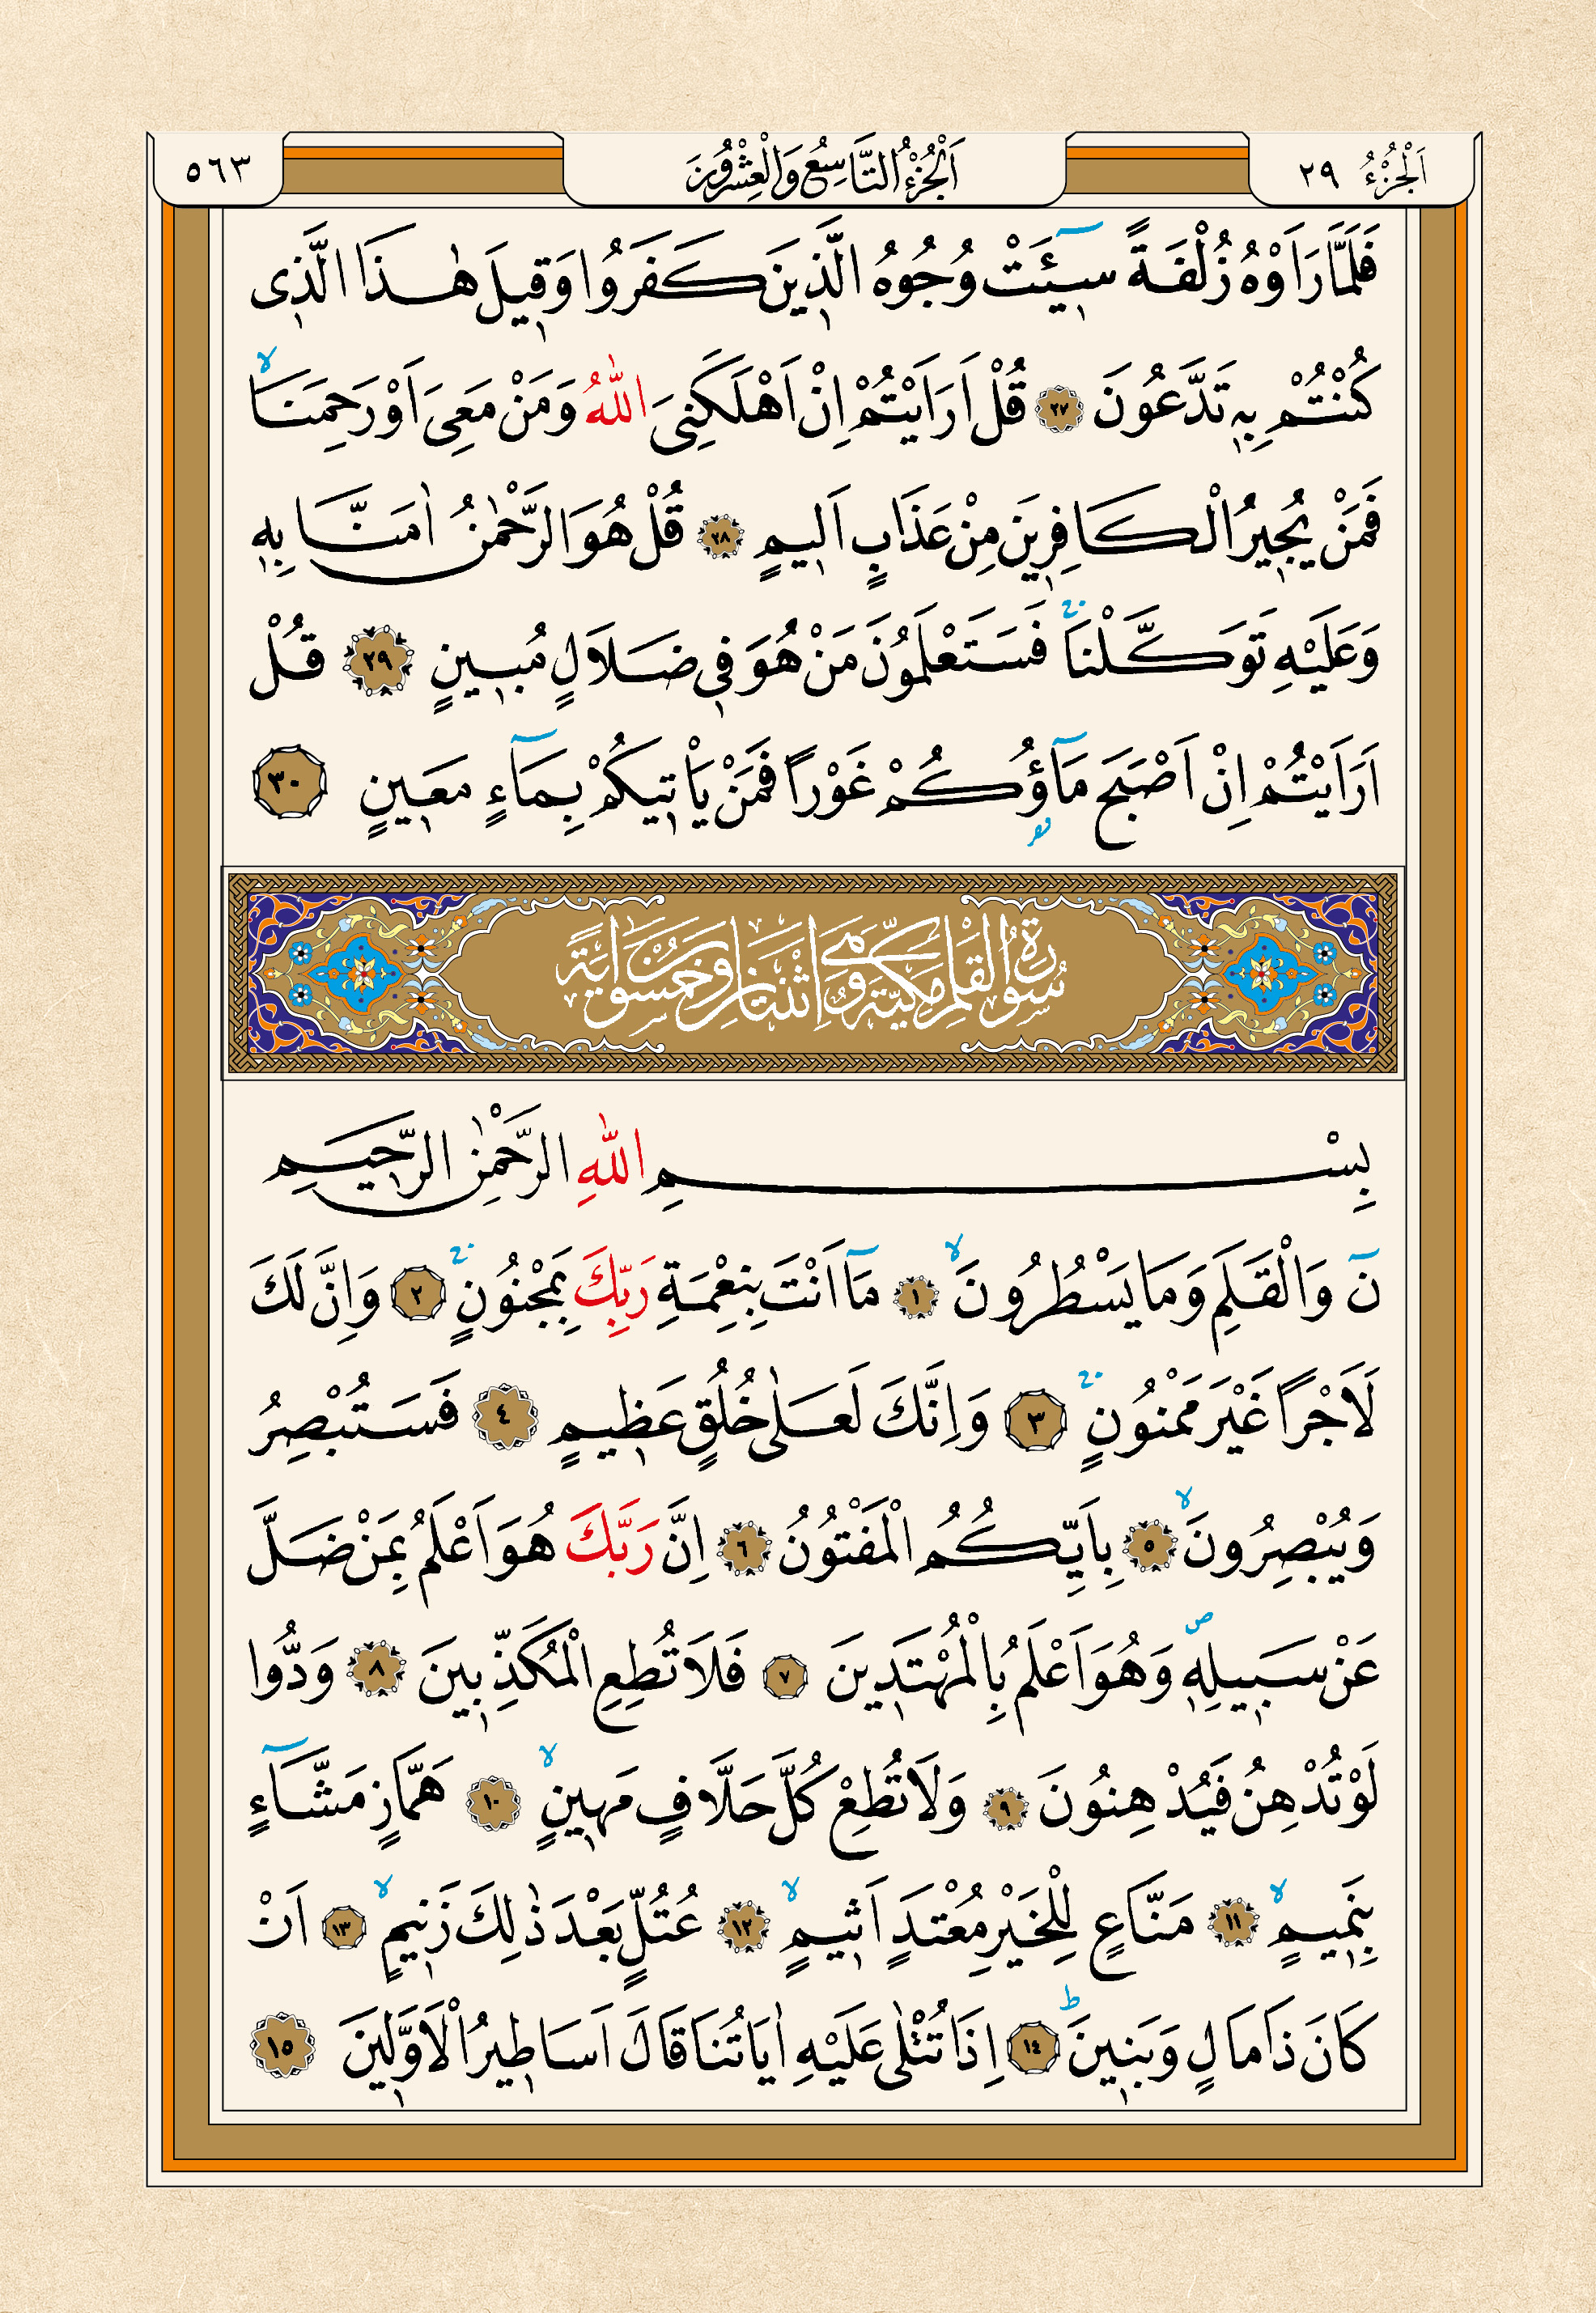 اَلْجُزْءُ ٢٩
اَلْجُزْءُ التَّاسِعُ وَالْعِشْرُونَ
٥٦٣
فَلَمَّا رَاَوْهُ زُلْفَةً سٖٓيـَٔتْ وُجُوهُ الَّذٖينَ كَفَرُوا وَقٖيلَ هٰذَا الَّذٖى
كُنْتُمْ بِهٖ تَدَّعُونَ ٢٧ قُلْ اَرَاَيْتُمْ اِنْ اَهْلَكَنِىَ اللّٰهُ وَمَنْ مَعِىَ اَوْ رَحِمَنَاۙ
فَمَنْ يُجٖيرُ الْكَافِرٖينَ مِنْ عَذَابٍ اَلٖيمٍ ٢٨ قُلْ هُوَ الرَّحْمٰنُ اٰمَنَّا بِهٖ
وَعَلَيْهِ تَوَكَّلْنَاۚ فَسَتَعْلَمُونَ مَنْ هُوَ فٖى ضَلَالٍ مُبٖينٍ ٢٩ قُلْ
اَرَاَيْتُمْ اِنْ اَصْبَحَ مَٓاؤُكُمْ غَوْرًا فَمَنْ يَاْتٖيكُمْ بِمَٓاءٍ مَعٖينٍ ٣٠
سُورَةُ الْقَلَمِ مَكِّيَّةٌ وَهِىَ اِثْنَتَانِ وَخَمْسُونَ اٰيَةً
بِسْمِ اللّٰهِ الرَّحْمٰنِ الرَّحٖيمِ
نٓ وَالْقَلَمِ وَمَا يَسْطُرُونَۙ ١ مَٓا اَنْتَ بِنِعْمَةِ رَبِّكَ بِمَجْنُونٍۚ ٢ وَاِنَّ لَكَ
لَاَجْرًا غَيْرَ مَمْنُونٍۚ ٣ وَاِنَّكَ لَعَلٰى خُلُقٍ عَظٖيمٍ ٤ فَسَتُبْصِرُ
وَيُبْصِرُونَۙ ٥ بِاَيِّكُمُ الْمَفْتُونُ ٦ اِنَّ رَبَّكَ هُوَ اَعْلَمُ بِمَنْ ضَلَّ
عَنْ سَبٖيلِهٖࣕ وَهُوَ اَعْلَمُ بِالْمُهْتَدٖينَ ٧ فَلَا تُطِعِ الْمُكَذِّبٖينَ ٨ وَدُّوا
لَوْ تُدْهِنُ فَيُدْهِنُونَ ٩ وَلَا تُطِعْ كُلَّ حَلَّافٍ مَهٖينٍۙ ١٠ هَمَّازٍ مَشَّٓاءٍ
بِنَمٖيمٍۙ ١١ مَنَّاعٍ لِلْخَيْرِ مُعْتَدٍ اَثٖيمٍۙ ١٢ عُتُلٍّ بَعْدَ ذٰلِكَ زَنٖيمٍۙ ١٣ اَنْ
كَانَ ذَا مَالٍ وَبَنٖينَؕ ١٤ اِذَا تُتْلٰى عَلَيْهِ اٰيَاتُنَا قَالَ اَسَاطٖيرُ الْاَوَّلٖينَ ١٥